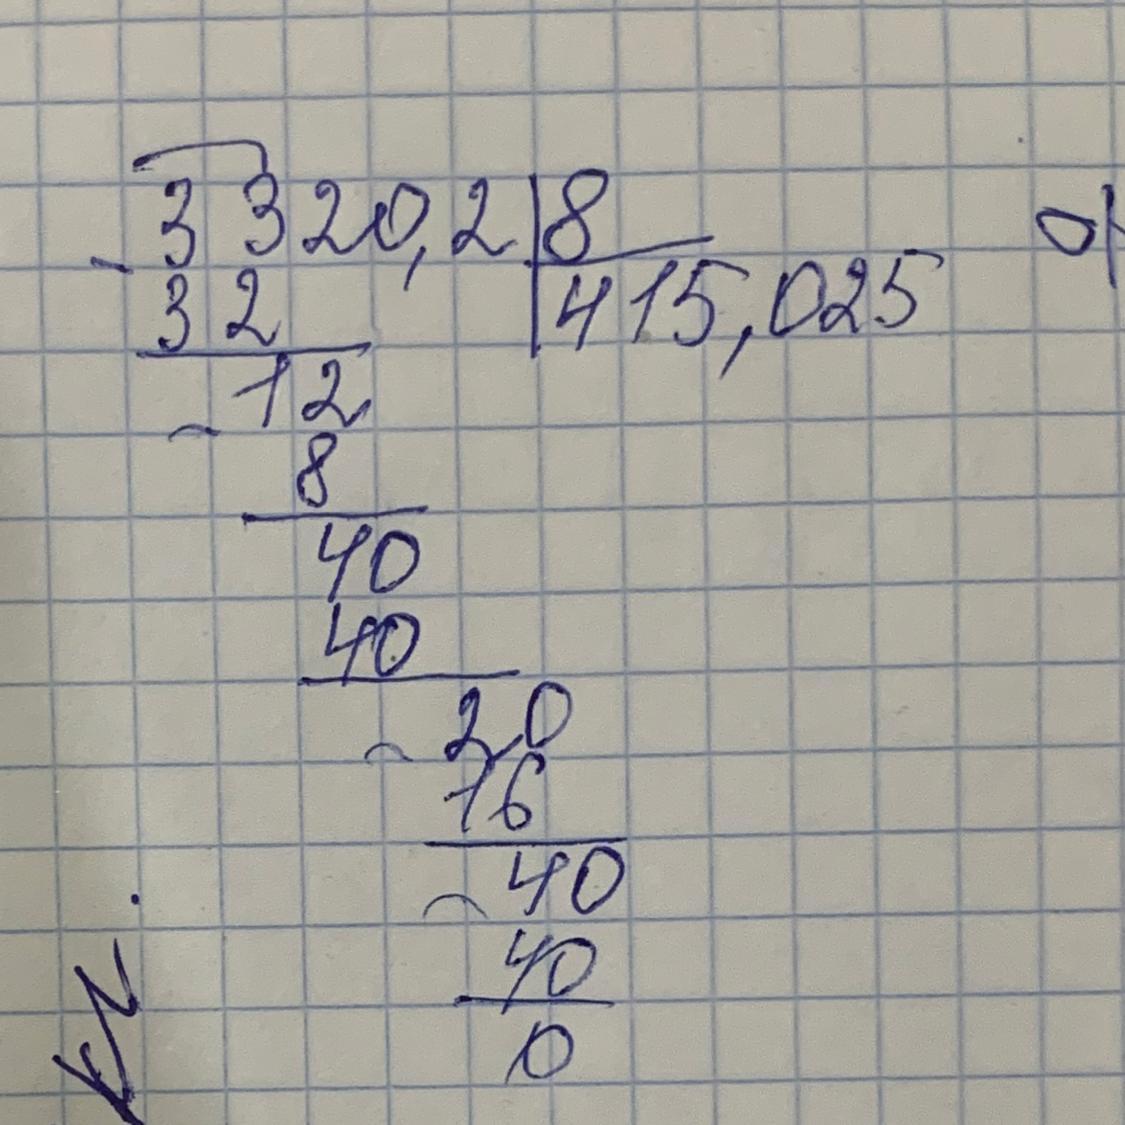 3320,2 8
- 32 415,025
- 12
8
40
40
- 20
16
- 40
40
0